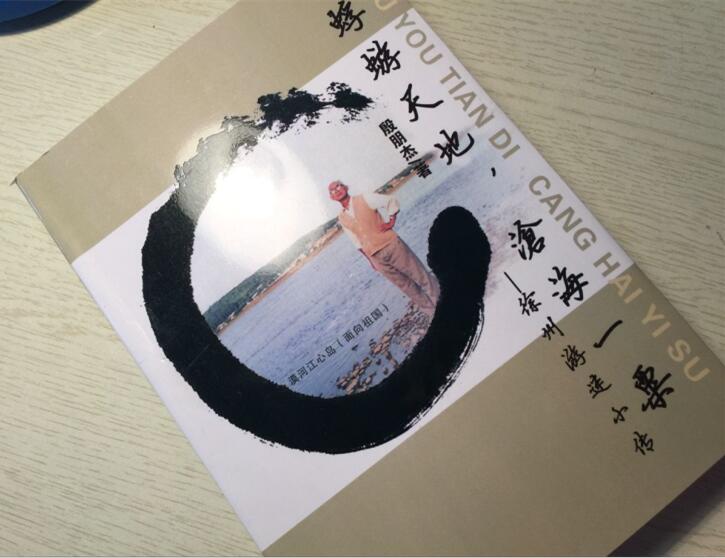 蜉蝣天地，滄海一粟
U YOU TIAN DI CANG HAI YI SU
—徐州游 小传
殷朋杰 著
漠河江心岛（面向祖国）